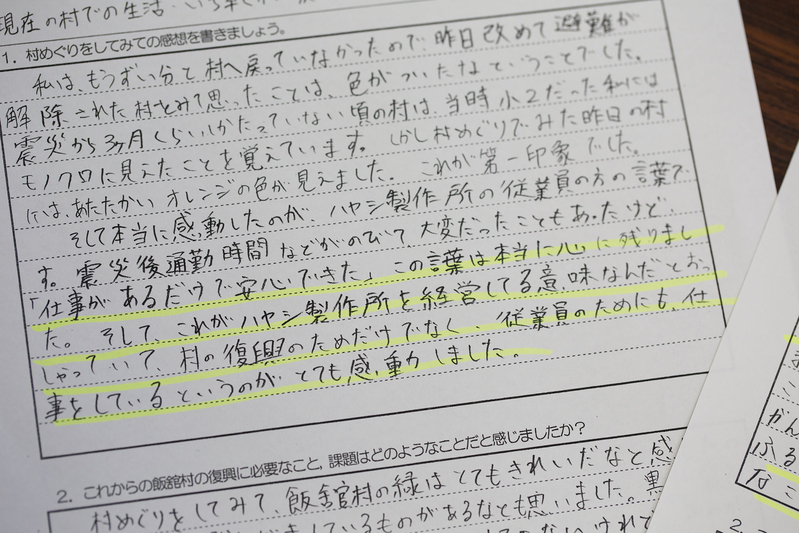 現在の村での生活・
1. 村めぐりをしてみての感想を書きましょう。
私は、もうずい分と村へ戻っていなかったので、昨日改めて避難が
解除された村をみて思ったことは、色がついたなということでした。
震災から3ヶ月くらいしかたっていない頃の村は、当時小2だった私には
モノクロに見えたことを覚えています。しかし村めぐりでみた昨日の村
には、あたたかいオレンジの色が見えました。これが第一印象でした。
そして本当に感動したのが、ハヤシ製作所の従業員の方の言葉で
す。震災後通勤時間などがのびて大変だったこともあったけど、
「仕事があるだけで安心できた」この言葉は本当に心に残りまし
た。そして、これがハヤシ製作所を経営してる意味なんだとおっ
しゃっていて、村の復興のためだけでなく、従業員のためにも、仕
事をしているというのがとても感動しました。
2. これからの飯舘村の復興に必要なこと、課題はどのようなことだと感じましたか?
村めぐりをしてみて、飯舘村の緑はとてもきれいだなと感
しているものがあるなとも思いました。黒
ないけれど
かん
ふる
なこ
2.